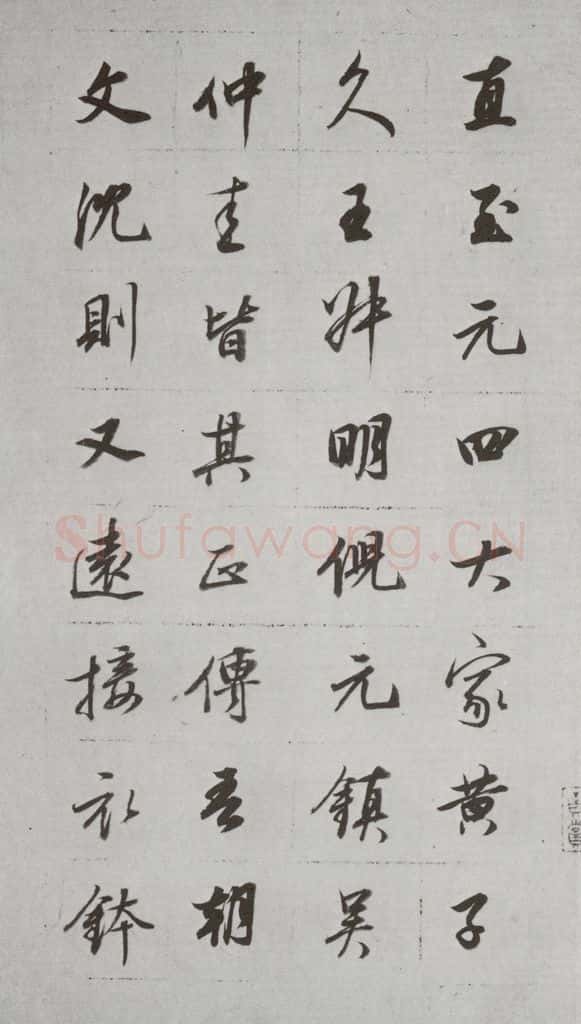 直至元四大家黄子
久王叔明倪元鎮吴
仲圭皆其正傳吾朝
文沈則又遠接衣鉢
Shufawang.CN